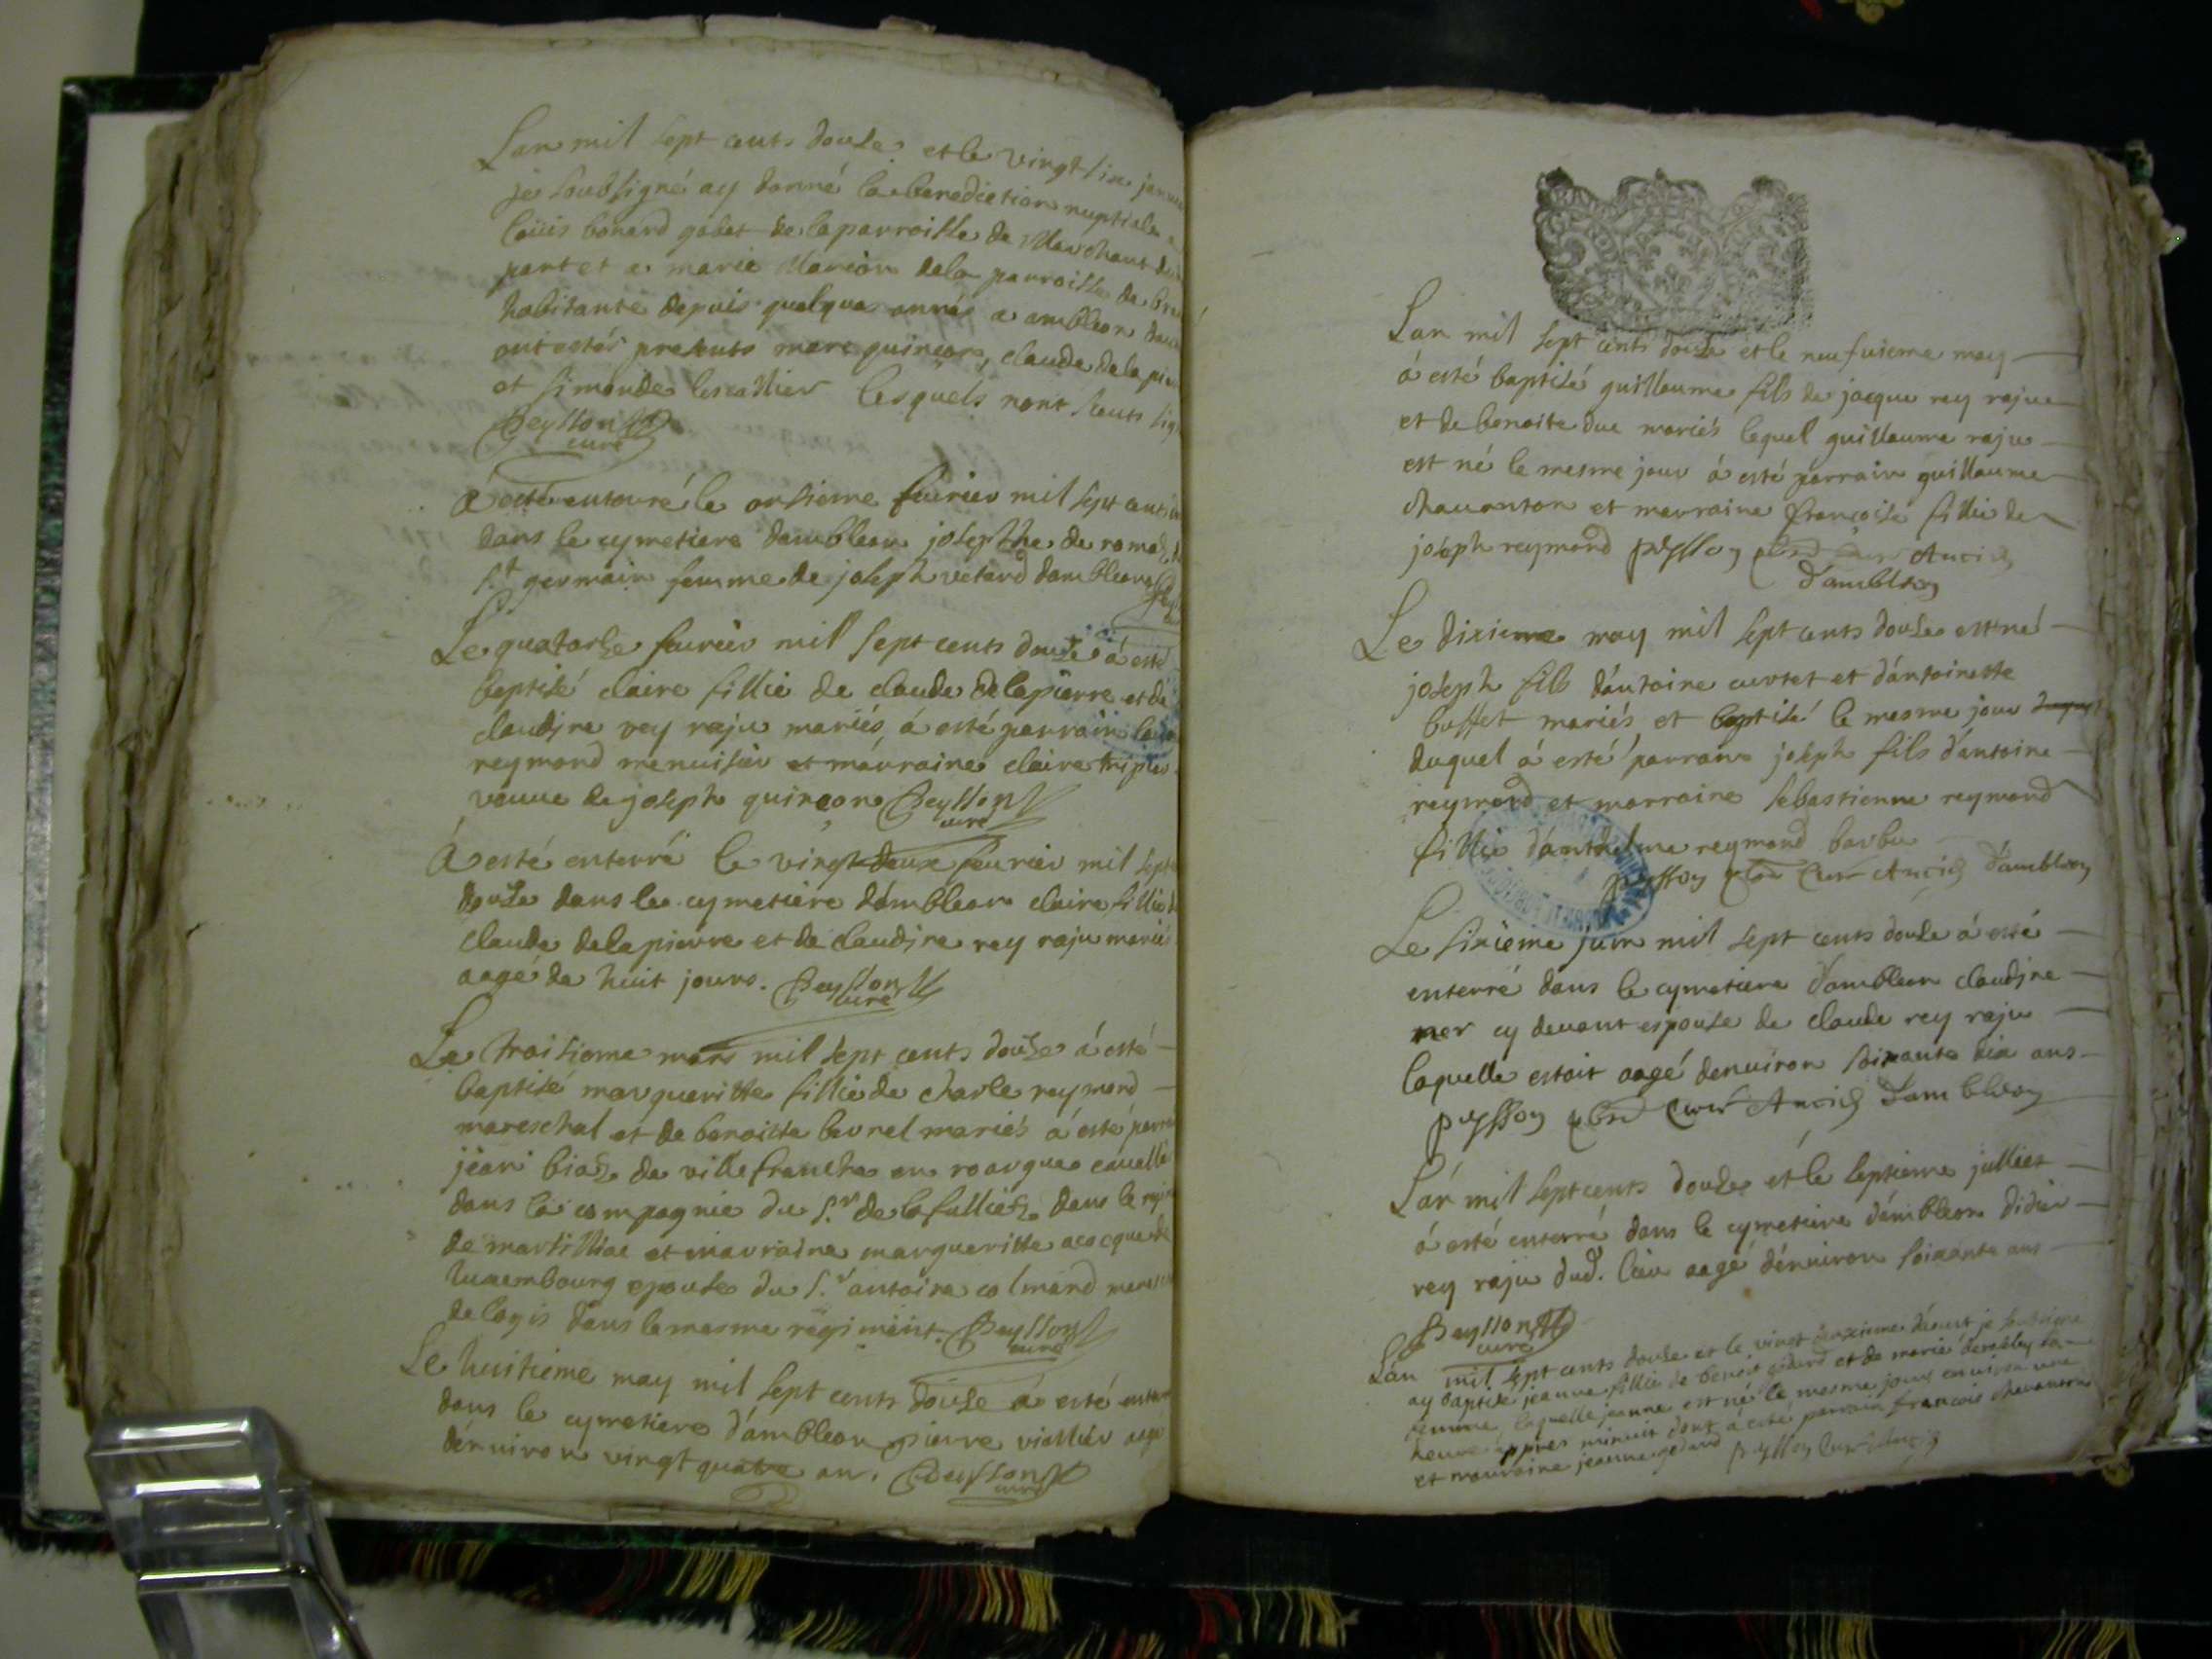 Lan mil sept cents douse et le vingt six
je soubsigné ay donné la benediction nuptiale
loüis bonard gobet de la parroisse de Marchant
part et a marie Marion dela parroisse de
habitante depuis quelques annés a ambleon
ont estés presents marc quinçon, claude dela
et simonde lescallier lesquels nont sceuts
Beysson
curé
à esté enterré le onsieme feurier mil sept cents
dans le cymetiere dambleon josephe de
st germain femme de joseph vetard dambleon
Le quatorse feurier mil sept cents douse à esté
baptisé claire fillie de claude delapierre et de
claudine rey raju mariés, à esté parrain
reymond menuisier et marraine claire tripier
veuue de joseph quinçon Beysson
curé
à esté enterré le vingt deux feurier mil sept
douse dans le cymetiere dámbleon claire fillie
claude delapierre et de claudine rey raju
aagé de huit jours. Beysson
curé
Le troisieme mars mil sept cents douse à esté
baptisé margueritte fillie de charle reymond
mareschal et de benoitte beurel mariés à esté
jean de ville franche en roargue
dans la compagnie du sr de dans le
de martilliac et marraine margueritte
luxembourg epouse du sr antoine colmand
de logis dans le mesme regiment. Beysson
curé
Le huitieme may mil sept cents douse à esté
dans le cymetiere d'ambleon pierre viallier aagé
dénuiron vingt quatre an. Beysson
curé
Lan mil sept cents douse et le neufuieme may
à esté baptisé guillaume fils de jacque rey raju
et de benoite duc mariés lequel guillaume raju
est né le mesme jour à esté parrain guillaume
chauanton et marraine françoise fillie de
joseph reymond peysson
d'ambleon
Le dixieme may mil sept cents douse est né
joseph fils dántoine curtet et dántoinette
buffet mariés, et baptisé le mesme jour
duquel à esté parrain joseph fils dántoine
reymond et marraine sebastienne reymond
fillie dánthelme reymond barbu
peysson d'ambleon
Le sixieme juin mil sept cents douse à esté
enterré dans le cymetiere d'ambleon claudine
mer cy deuant espouse de claude rey raju
laquelle estoit aagé denuiron soixante dix ans
peysson d'ambleon
Lán mil sept cents douse et le septieme julliet
à esté enterré dans le cymetiere dámbleon didier
rey raju dud. lieu aagé dénuiron soixante ans
Beysson
curé
Lán mil sept cents douse et le vingt deuxieme je soubsigné
ay baptisé jeanne fillie de benoit godard et de marie sa
femme, laquelle jeanne est né le mesme jour enuiron une
heure appres minuit dont à esté parrain françois chauanton
et marraine jeanne godard peysson